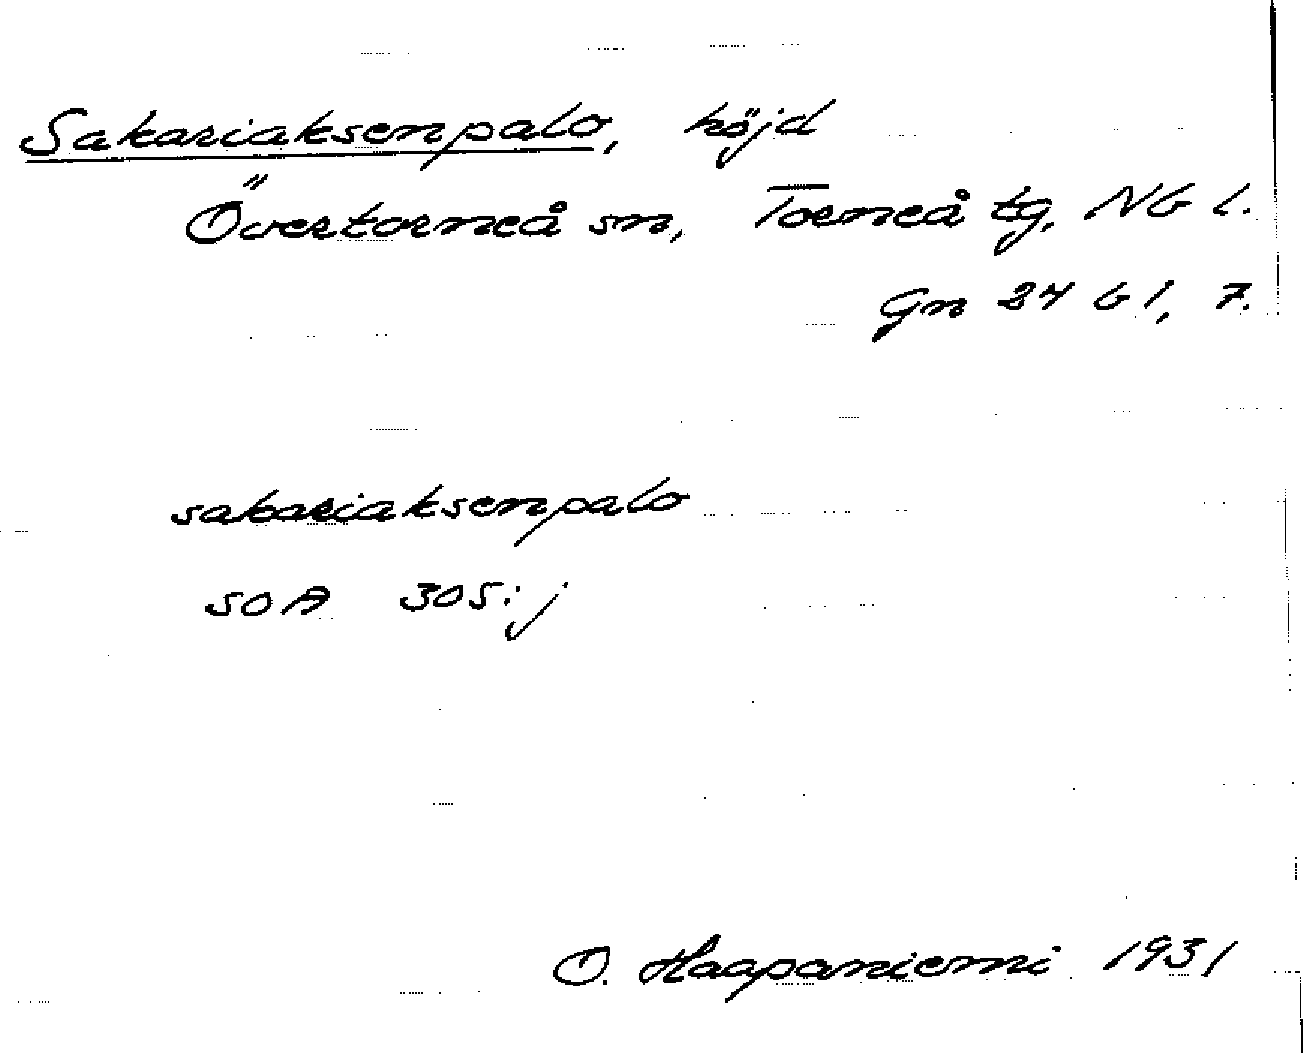 Sakariaksenpalo, höjd
Övertorneå sn, Torneå tg, NB l.
Gn 24 b 1, 7.
sakariaksenpalo
SOA 305:j
O. Haapaniemi 1931